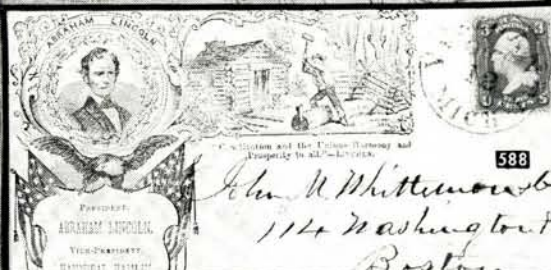 ABRAHAM LINCOLN
Constitution and the Union: Harmony and
Prosperity to all."—LINCOLN.
3 3
MICH
588
PRESIDENT,
ABRAHAM LINCOLN.
VICE-PRESIDENT,
HANNIBAL HAMLIN
John
114 Washington
Boston